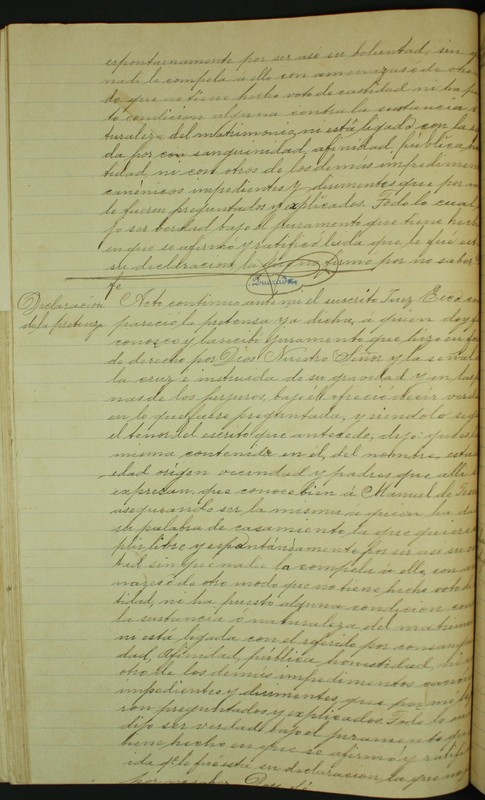 espontaneamente por ser asi su boluntad, sin q
nadie le compela á ello con amenazas ó de otro
do, que no tiene hecho voto de castidad ni ha p
to condicion alguna contra la sustancia
turaleza del matrimonio, ni está ligado con la
da por con sanguinidad, afinidad, pública
tidad, ni con otros de los demás impedimen
canónicos impedientes y dirimentes que por m
le fueron preguntados y explicados. Todo lo cual
jo ser berdad bajo el juramento que tiene hech
en que se afirmó y ratificó leida que le fué
su declaracion, la que no firmó por no saber
fe
Declaracion
de la pretensa
Acto continuo ante mi el suscrito Juez Ecco
parecio la pretensa ya dicha, á quien doy f
conosco y la recibi juramento que hizo en
de derecho por Dios Nuestro Señor y la señal
la cruz é instruida de su gravedad y en las p
nas de los perjuros, bajo él ofreció decir verda
en lo que fuere preguntada, y siendolo
el tenor del escrito que antecede, dijó: que es
misma contenida en él, del nombre, estad
edad origen vecindad y padres que allí
expresan, que conoce bien á Manuel de
asegurando ser la misma á quien ha da
su palabra de casamiento, la que quiere
plir libre y espontáneamente por ser asi su
tad sin que nadie la compela á ello, con am
nazas ó de otro modo que no tiene hecho voto de
tidad, ni ha puesto alguna condicion con
la sustancia ó naturaleza del matrimo
ni está ligada con el referido por consangui
dad, afinidad, pública honestidad, ni
otro de los demás impedimentos canon
impedientes y dirimentes, que por mí le
ron preguntados y explicados. Todo lo cu
dijo ser verdad bajo el juramento que
tiene hecho en que se afirmó y ratifi
ida qe. le fué está en declaracion, la que no
por no saber. Doy fé